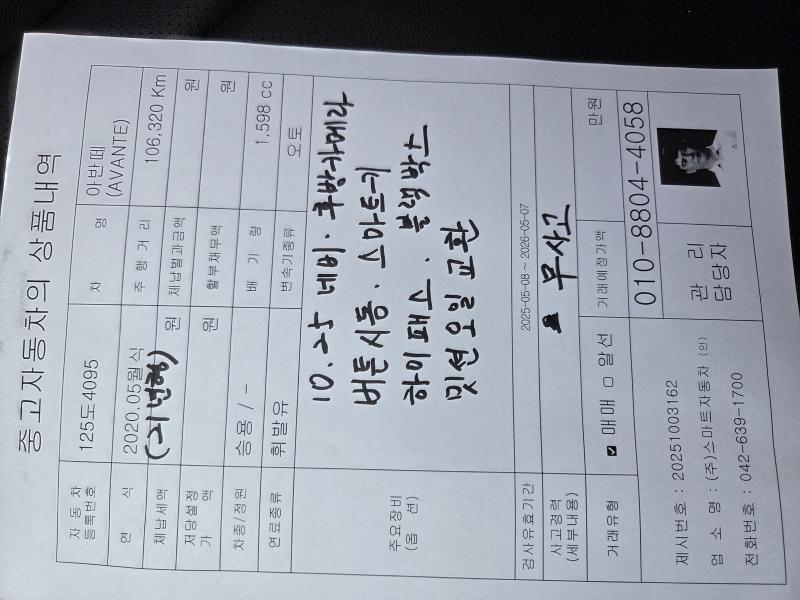 중고자동차의 상품내역
자동차등록번호 125도4095 차 명 아반떼(AVANTE)
연 식 2020.05월식 (21년형) 주행거리 106,320 Km
체납세액 원 체납벌과금액 원
저당설정가액 원 할부채무액 원
차종/정원 승용 / - 배 기 량 1,598 cc
연료종류 휘발유 변속기종류 오토
주요장비(옵 션)
10.25 네비. 후방카메라
버튼시동. 스마트키
하이패스. 블랙박스
밋션오일 교환
검사유효기간 2025-05-08 ~ 2026-05-07
사고경력(세부내용) 무사고
거래유형 ☑ 매매 □ 알선 거래예정가액 만원
제시번호 : 20251003162
업 소 명 : (주)스마트자동차 (인)
전화번호 : 042-639-1700
관 리 담당자 010-8804-4058